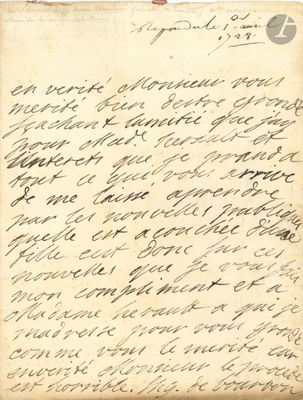 Repondu le 1er avril
1728
en verité Monsieur vous
merité bien destre grondé
sachant lamitié que jay
pour Mad. herault et
linterets que je prend a
tout ce qui vous arrive
de me laisse aprendre
par les nouvelles publiques
quelle est acouchée dune
fille cest donc sur ces
nouvelles que je vous fais
mon compliment et a
Madame herault a qui je
madresse pour vous gronde
comme vous le merité car
enverité Monsieur le procede
est horrible. de bourbon